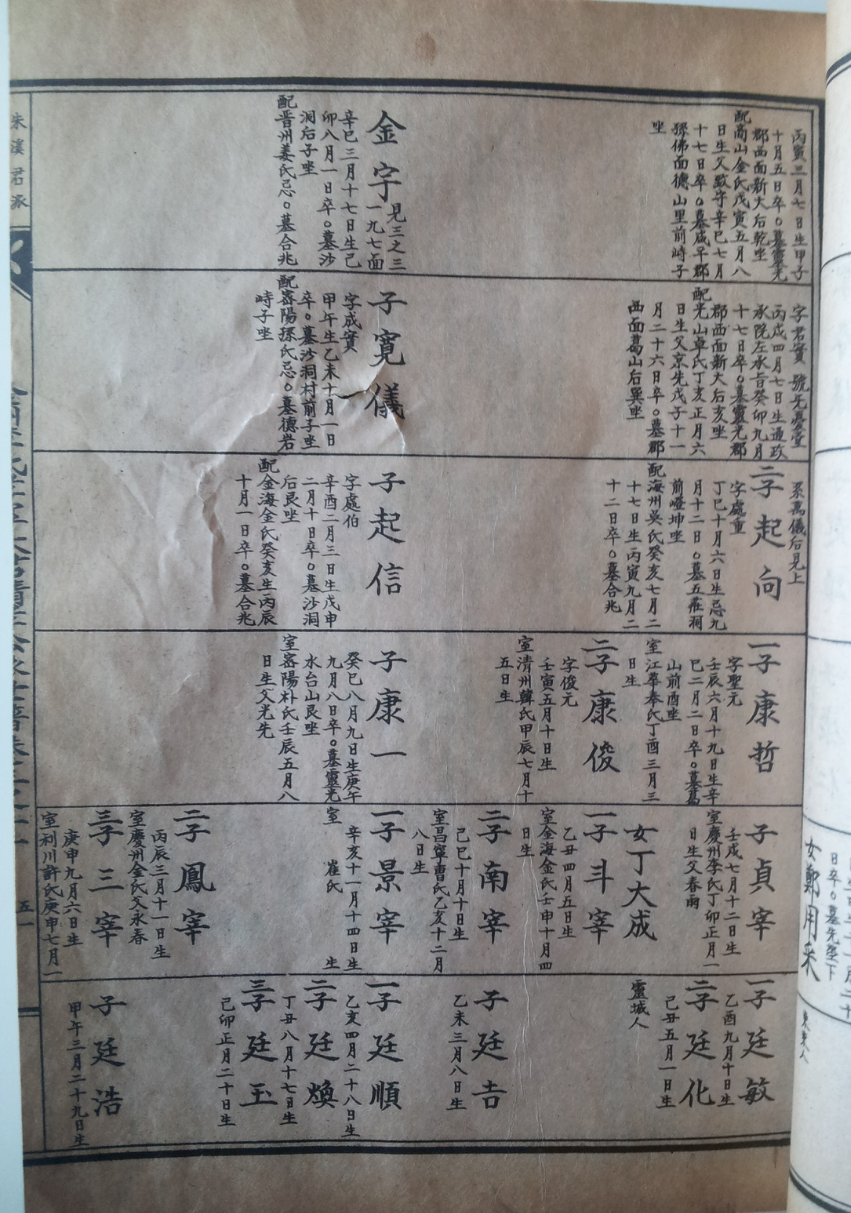 丙寅三月七日生甲子
十月五日卒○墓靈光
郡西面新大后乾坐
配商山金氏戊寅五月八
日生父致守辛巳七月
十七日卒○墓咸平郡
孫佛面德山里前峙子
坐
金宇
見三之三
一九七面
辛巳三月十七日生己
卯八月一日卒○墓沙
洞后子坐
配晋州姜氏忌○墓合兆
字君實 號先臺堂
丙戌四月七日生通政
承院左承旨癸卯九月
十七日卒○墓靈光郡
郡西面新大后亥坐
配光山卓氏丁亥正月六
日生父京先戊子十一
月二十六日卒○墓郡
西面葛山后巽坐
子寬儀
字成實
甲午生乙未十月一日
卒○墓沙洞村前子坐
配密陽孫氏忌○墓德岩
峙子坐
系萬儀后見上
二子起向
字處重
丁巳十月六日生忌九
月十二日○墓五莊洞
前嶝坤坐
配海州吳氏癸亥七月二
十七日生丙寅九月二
十二日卒○墓合兆
子起信
字處伯
辛酉二月三日生戊申
二月十日卒○墓沙洞
后艮坐
配金海金氏癸亥生丙辰
十月一日卒○墓合兆
一子康哲
字聖元
壬辰六月十九日生辛
巳二月二日卒○墓葛
山前酉坐
室江華奉氏丁酉三月三
日生
二子康俊
字俊元
壬寅五月十日生
室清州韓氏甲辰七月十
五日生
子康一
癸巳八月九日生庚午
九月八日卒○墓靈光
水台山艮坐
室密陽朴氏壬辰五月八
日生父光先
子貞宰
壬戌七月十二日生
室慶州李氏丁卯正月一
日生父春雨
女丁大成
靈城人
一子斗宰
乙丑四月五日生
室金海金氏壬申十月四
日生
二子南宰
己巳十月十日生
室昌寧曹氏乙亥十二月
八日生
一子景宰
辛亥十一月十四日生
室 崔氏 生
二子鳳宰
丙辰三月十一日生
室慶州金氏父永春
三子三宰
庚申九月六日生
室利川許氏庚申七月一
一子廷敏
乙酉九月十日生
二子廷化
己丑五月一日生
子廷吉
乙未三月八日生
一子廷順
乙亥四月二十八日生
二子廷煥
丁丑八月十七日生
三子廷玉
己卯正月二十日生
子廷浩
甲午三月二十九日生
五一
女鄭用采
日卒○墓先塋下